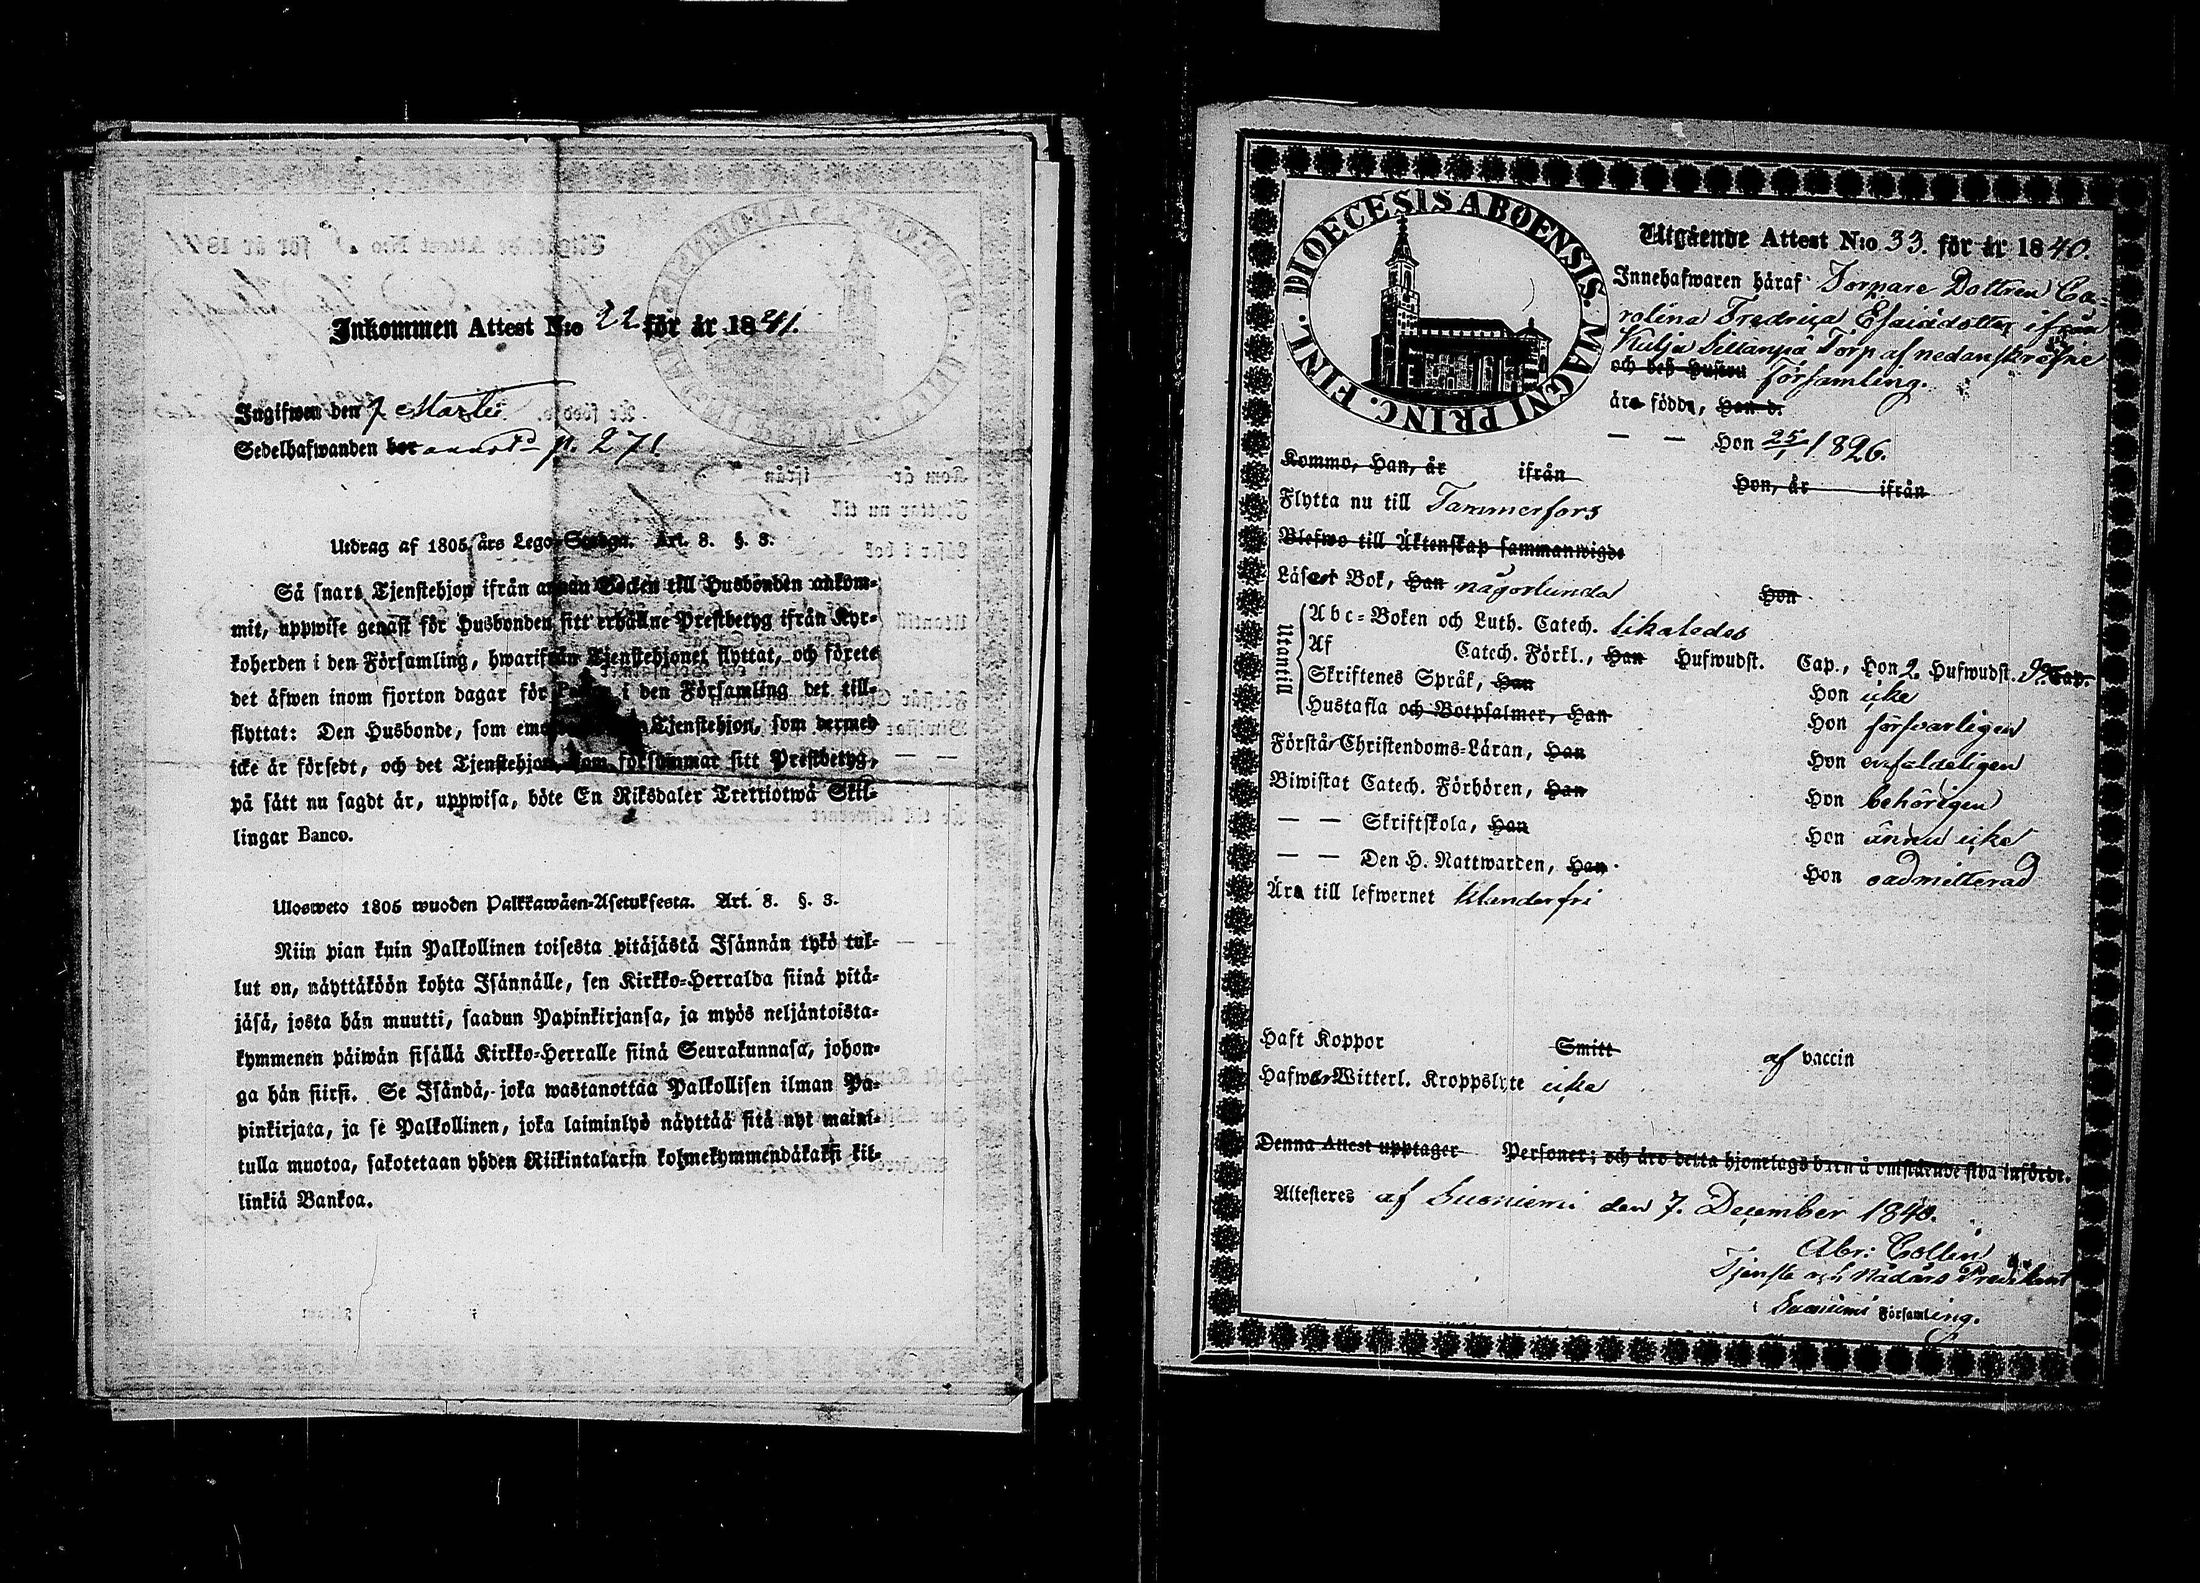 Inkommen Attest N:o 22 för år 1841.
Ingifwen den 7 Martii
Sedelhafwanden bor annot. p. 271
Utdrag af 1805 års Lego-Stadga. Art. 8. §. 3.
Så snart Tjenstehjon ifrån annan Socken till Husbonden ankom-
mit, uppwise genast för Husbonden sitt erhållne Prestbetyg ifrån Kyr-
koherden i den Församling, hwarifrån Tjenstehjonet flyttat, och förete
det äfwen inom fjorton dagar för i den Församling det till-
flyttat: Den Husbonde, som Tjenstehjon, som dermed
icke är försedt, och det Tjenstehjon, som försummar sitt Prestbetyg,
på sätt nu sagdt är, uppwisa, böte En Riksdaler Trettiotwå Skil-
lingar Banco.
Ulosweto 1805 wuoden Palkkawäen-Asetuksesta. Art. 8. §. 3.
Niin pian kuin Palkollinen toisesta pitäjästä Isännän tykö tul-
lut on, näyttäköön kohta Isännälle, sen Kirkko-Herralda siinä pitä-
jäsä, josta hän muutti, saadun Papinkirjansa, ja myös neljäntoista-
kymmenen päiwän sisällä Kirkko-Herralle siinä Seurakunnasa, johon-
ga hän siirsi. Se Isändä, joka wastanottaa Palkollisen ilman Pa-
pinkirjata, ja se Palkollinen, joka laiminlyö näyttää sitä nyt maini-
tulla muotoa, sakotetaan yhden Riikintalarin kolmekymmendäkaksi kil-
linkiä Bankoa.
DIOECESIS ABOENSIS. MAGNI PRINC. FINL.
Utgående Attest N:o 33. för år 1840.
Innehafwaren häraf Torpare Dottren Ca-
rolina Fredrica Esaiædotter ifrån
Kulju Sillanpä Torp af nedanskrefne
och deß Hustru församling.
äro födde, Han d.
— — Hon 25/1 1826.
Kommo, Han, år ifrån Hon, år ifrån
Flytta nu till Tammerfors
Blefwo till Äktenskap sammanwigde
Läser i Bok, Han någorlunda Hon
Utantill
Abc-Boken och Luth. Catech. likaledes
Af Catech. Förkl., Han Hufwudst. Cap., Hon 2. Hufwudst. Cap.
Skriftenes Språk, Han Hon icke
Hustafla och Botpsalmer, Han Hon försvarligen
Förstår Christendoms-Läran, Han Hon enfaldeligen
Biwistat Catech. Förhören, Han Hon behörigen
— — Skriftskola, Han Hon ännu icke
— — Den H. Nattwarden, Han Hon oadmitterad
Ära till lefwernet klanderfri
Haft Koppor Smitt af vaccin
Hafwer Witterl. Kroppslyte icke
Denna Attest upptager Personer; och äro detta hjonelags barn å omstående sida införde.
Attesteres af Suoniemi den 7. December 1840.
Abr: Collin
Tjenste och Nådårs Predikant
i Suoniemi Församling.